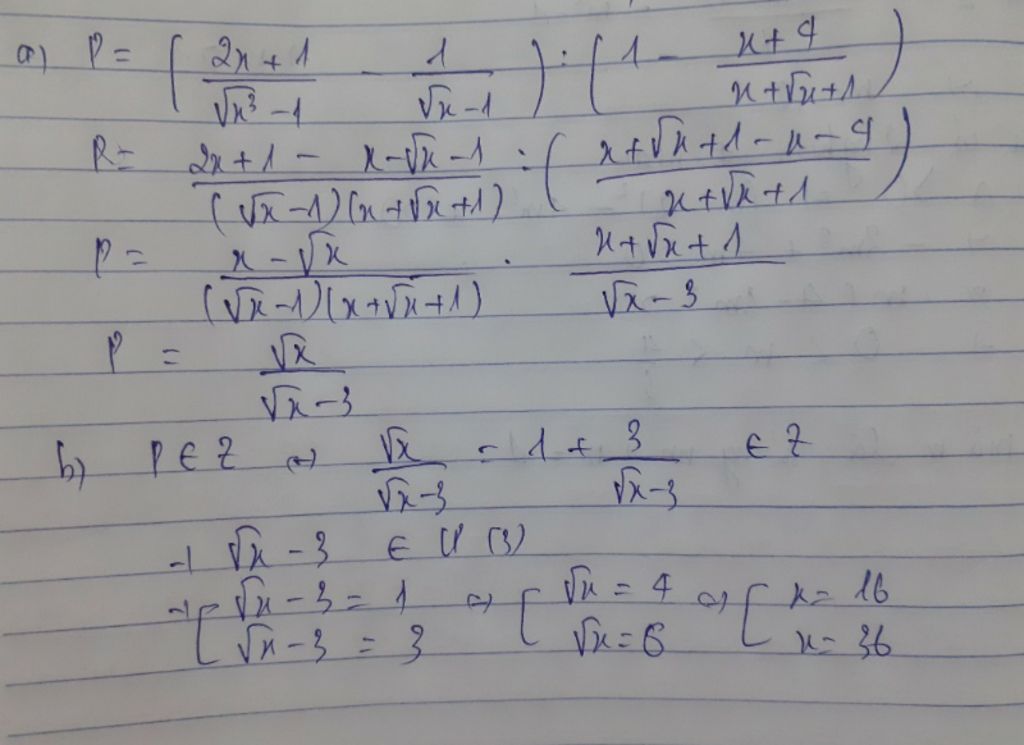 a) P = ( (2x + 1)/(√x³ - 1) - 1/(√x - 1) ) : ( 1 - (x + 4)/(x + √x + 1) )
P = (2x + 1 - x - √x - 1)/((√x - 1)(x + √x + 1)) : ( (x + √x + 1 - x - 4)/(x + √x + 1) )
P = (x - √x)/((√x - 1)(x + √x + 1)) . (x + √x + 1)/(√x - 3)
P = √x/(√x - 3)
b) P ∈ Z ⇔ √x/(√x - 3) = 1 + 3/(√x - 3) ∈ Z
→ √x - 3 ∈ Ư (3)
→ [ √x - 3 = 1 ⇔ [ √x = 4 ⇔ [ x = 16
√x - 3 = 3 √x = 6 x = 36